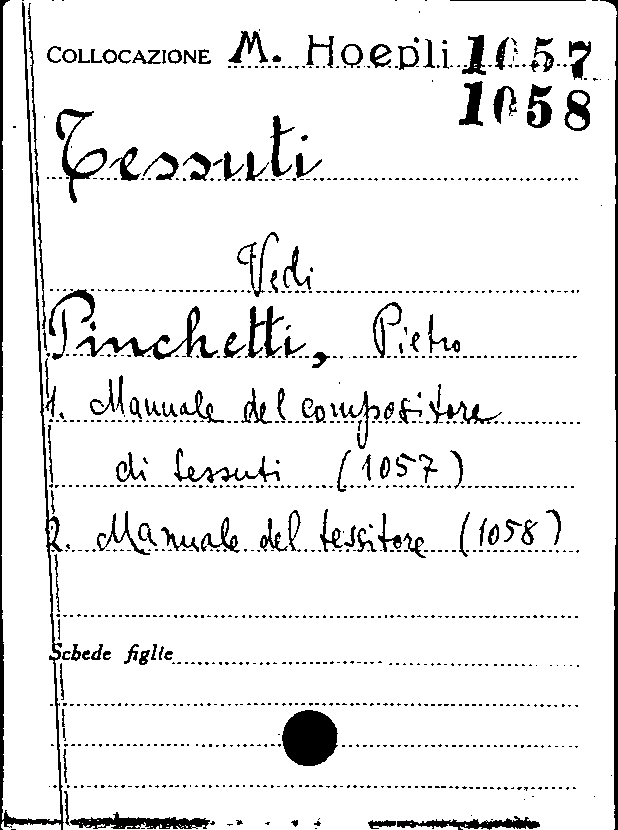 COLLOCAZIONE M. Hoepli 1057
1058
Tessuti
Vedi
Pinchetti, Pietro
1. Manuale del compositore
di tessuti (1057)
2. Manuale del tessitore (1058)
Schede figlie